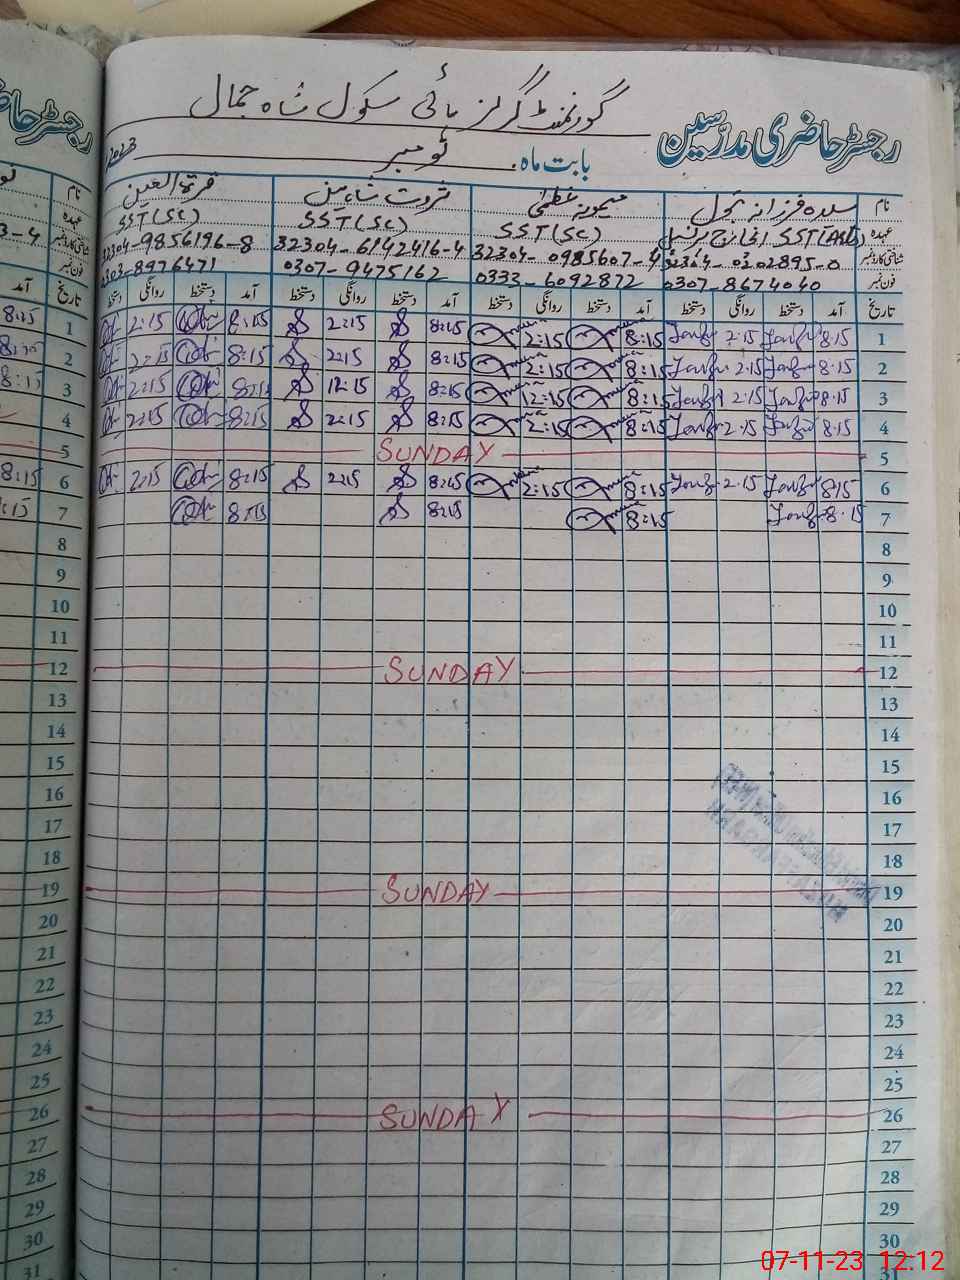 گورنمنٹ گرلز ہائی سکول شاہ جمال
رجسٹر حاضری مدرسین
بابت ماہ نومبر 2023
نام سیدہ فرزانہ بتول میمونہ عظمیٰ ثروت شاہ من قرۃ العین
عہدہ SST(Arts) انچارج پرنسپل SST(SC) SST(SC) SST(SC)
شناختی کارڈ نمبر 32304-0202895-0 32304-0985607-4 32304-6142416-4 32304-9856196-8
فون نمبر 0307-8674040 0333-6092872 0307-9475162 0303-8976471
تاریخ آمد دستخط روانگی دستخط آمد دستخط روانگی دستخط آمد دستخط روانگی دستخط آمد دستخط روانگی دستخط
1 8:15 2:15 8:15 2:15 8:15 2:15 8:15 2:15
2 8:15 2:15 8:15 2:15 8:15 2:15 8:15 2:15
3 8:15 2:15 8:15 2:15 8:15 12:15 8:15 2:15
4 8:15 2:15 8:15 2:15 8:15 2:15 8:15 2:15
5 SUNDAY
6 8:15 2:15 8:15 2:15 8:15 2:15 8:15 2:15
7 8:15 8:15 8:15 8:15
8
9
10
11
12 SUNDAY
13
14
15
16
17
18
19 SUNDAY
20
21
22
23
24
25
26 SUNDAY
27
28
29
30
31
07-11-23 12:12